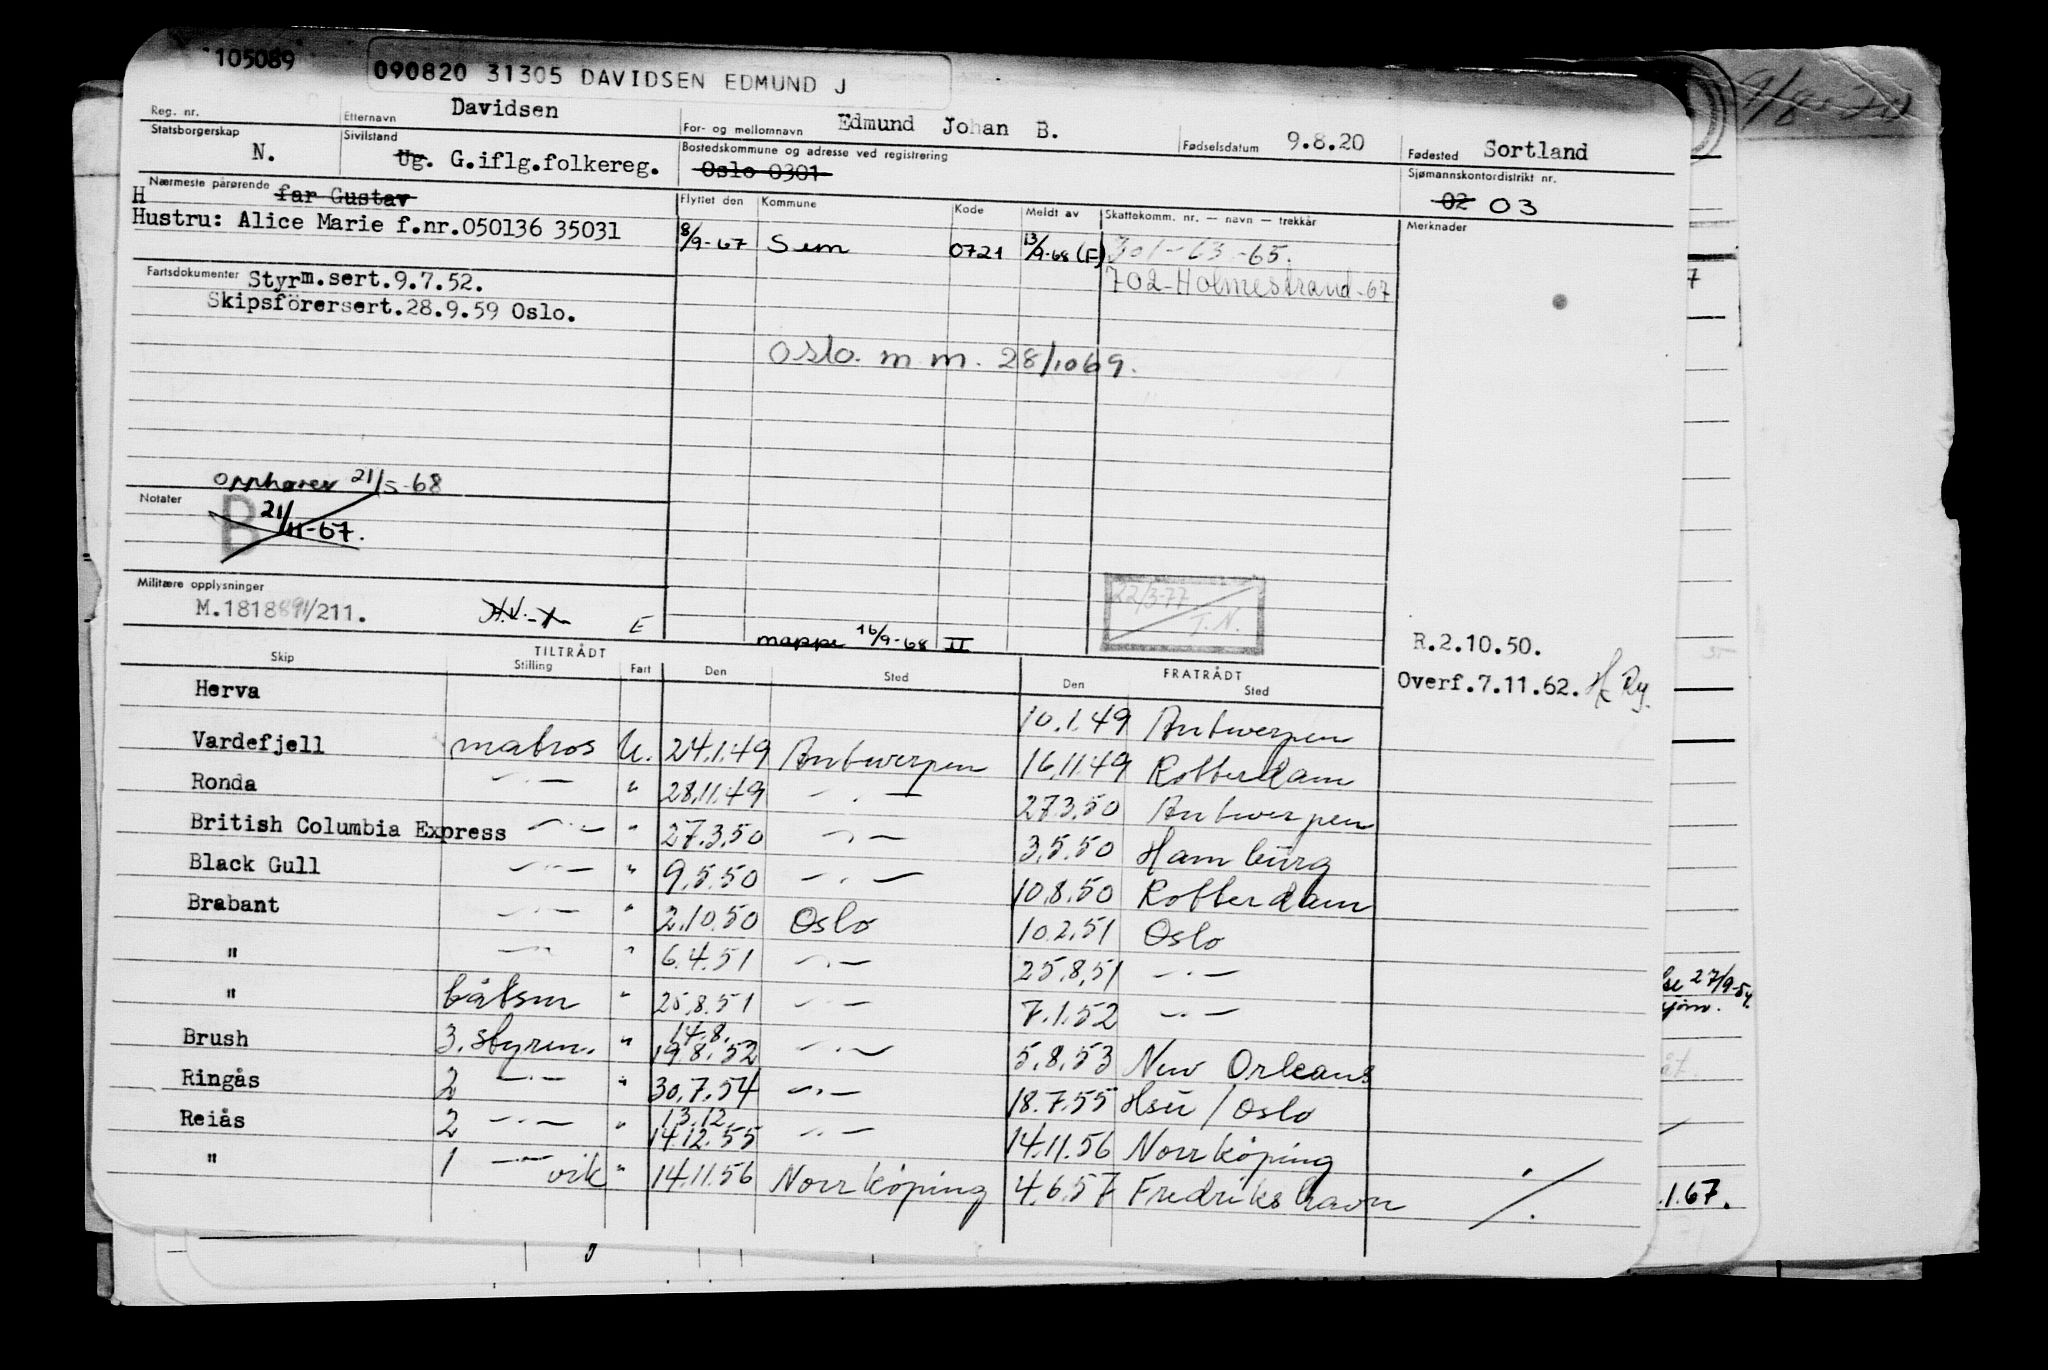 105089
090820 31305 DAVIDSEN EDMUND J
Reg. nr.
Etternavn Davidsen
For- og mellomnavn Edmund Johan B.
Fødselsdatum 9.8.20
Fødested Sortland
Statsborgerskap N.
Sivilstand Ug. G.iflg.folkereg.
Bostedskommune og adresse ved registrering
Oslo 0301
Sjømannskontordistrikt nr.
02 03
Nærmeste pårørende far Gustav
H
Hustru: Alice Marie f.nr.050136 35031
Flyttet den Kommune Kode Meldt av Skattekomm. nr. — navn — trekkår Merknader
8/9-67 Sem 0721 13/9-68 (F) 301-63-65.
702-Holmestrand-67
Fartsdokumenter Styrm.sert.9.7.52.
Skipsförersert.28.9.59 Oslo.
Oslo. m m. 28/10 69.
Opphører 21/5-68
Notater
B 21/11-67.
Militære opplysninger
M.1818891/211.
E
mappe 16/9-68 II
22/3-77
T.N.
R.2.10.50.
Overf.7.11.62.
TILTRÅDT FRATRÅDT
Skip Stilling Fart Den Sted Den Sted
Herva 10.1.49 Antwerpen
Vardefjell matros U. 24.1.49 Antwerpen 16.11.49 Rotterdam
Ronda —"— " 28.11.49 —"— 27.3.50 Antwerpen
British Columbia Express —"— " 27.3.50 —"— 3.5.50 Hamburg
Black Gull —"— " 9.5.50 —"— 10.8.50 Rotterdam
Brabant —"— " 2.10.50 Oslo 10.2.51 Oslo
" —"— " 6.4.51 —"— 25.8.51 —"—
" båtsm " 25.8.51 —"— 7.1.52 —"—
14.8.
Brush 3. styrm. " 19.8.52 —"— 5.8.53 New Orleans
Ringås 2 —"— " 30.7.54 —"— 18.7.55 Hsu / Oslo
13.12.
Reiås 2 —"— " 14.12.55 —"— 14.11.56 Norrköping
" 1 —"— vik " 14.11.56 Norrköping 4.6.57 Fredrikshavn
./.
9/8-20
7
27/9-54.
.1.67.